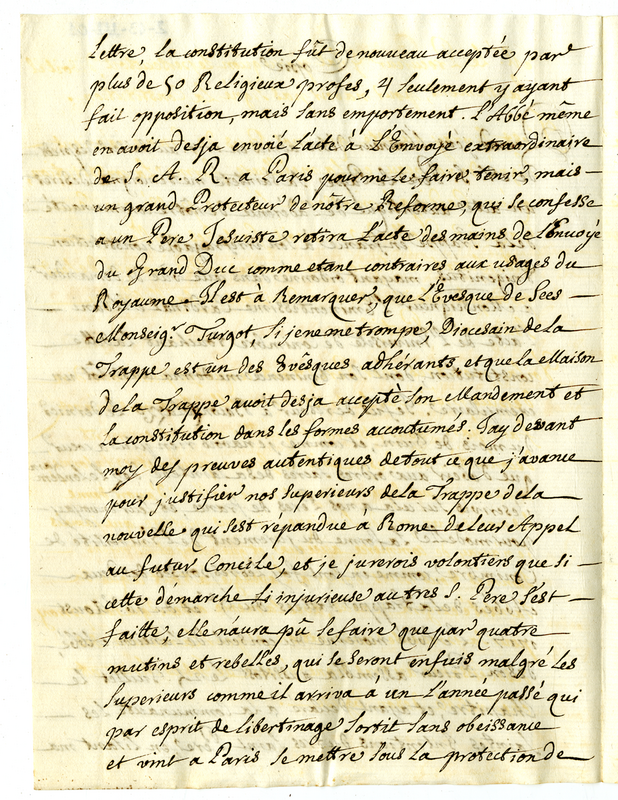 lettre, la constitution fût de nouveau acceptée par
plus de 50 Religieux profes, 4 seulement y ayant
fait opposition, mais sans emportement. L'Abbé même
en avoit desja envoié l'acte à L'Envoyé extraordinaire
de S. A. R. a Paris pour me le faire tenir, mais
un grand Protecteur de nôtre Reforme, qui se confesse
a un Pere Jesuiste retira l'acte des mains de l'Envoyé
du Grand Duc comme etant contraires aux usages du
Royaume. Il est à Remarquer, que L'Evesque de Sees
Monseigr. Turgot, si je ne me trompe, Diocesain de la
Trappe est un des Evêsques adhérants, et que la Maison
de la Trappe avoit desja acceptè son Mandement et
la constitution dans les formes accoutumés. J'ay devant
moy des preuves autentiques de tout ce que j'avance
pour justifièr nos superieurs de la Trappe de la
nouvelle qui s'est répandue à Rome de leur Appel
au futur Concile, et je jurerois volontiers que si
cette démarche si injurieuse au tres S. Pere s'est
faitte, elle n'aura pû se faire que par quatre
mutins et rebelles, qui se seront enfuis malgré les
superieurs comme il arriva à un l'année passé qui
par esprit de libertinage sortit sans obeissance
et vint a Paris se mettre sous la protection de